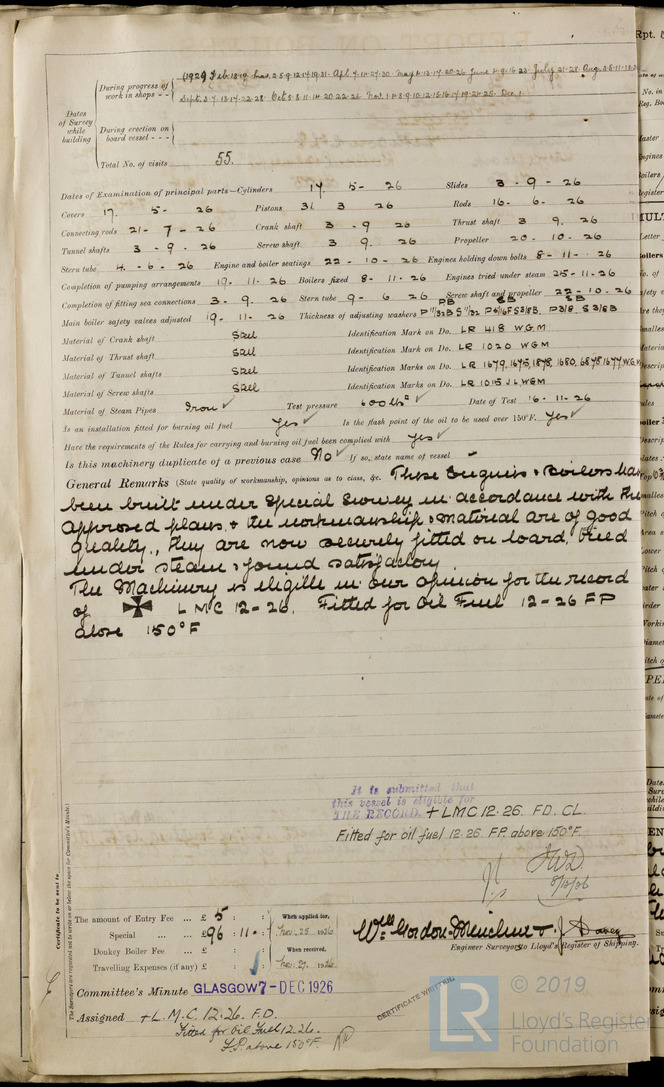 During progress of
work in shops - -
(1926) Feb. 18.19. Mar. 2.5.9.12.17.19.31. Apl. 7.14.27.30. May 4.13.17.20.26 June 4.9.16.23 July 21.28. Aug. 3.5.11.18
Sept. 3.7.13.17.22.28. Oct. 5.8.11.14.20.22.26 Nov. 1.4.8.9.10.12.15.16.17.19.24.25. Dec. 1.
Dates
of Survey
while
building
During erection on
board vessel - - -
Total No. of visits 55.
Dates of Examination of principal parts—Cylinders 17. 5- 26 Slides 3 - 9 - 26
Covers 17. 5- 26 Pistons 31 3 26 Rods 16- 6- 26
Connecting rods 21- 7 - 26 Crank shaft 3 - 9 26 Thrust shaft 3 9. 26
Tunnel shafts 3 - 9 - 26 Screw shaft 3 9. 26 Propeller 20 - 10 - 26
Stern tube 4 - 6 - 26 Engine and boiler seatings 22 - 10 - 26 Engines holding down bolts 8 - 11 - 26
Completion of pumping arrangements 19 - 11 - 26 Boilers fixed 8 - 11 - 26 Engines tried under steam 25 - 11 - 26
Completion of fitting sea connections 3 - 9. 26 Stern tube 9 - 6 26 Screw shaft and propeller 22 - 10 - 26
Main boiler safety valves adjusted 19 - 11 - 26 Thickness of adjusting washers
Material of Crank shaft Steel Identification Mark on Do. LR 418 W.G.M
Material of Thrust shaft Steel Identification Mark on Do. LR 1020 W.G.M
Material of Tunnel shafts Steel Identification Marks on Do. LR 1679, 1675, 1878, 1680, 6878 1677 W.G.M
Material of Screw shafts Steel Identification Marks on Do. LR 1015 J L, W.G.M
Material of Steam Pipes Iron ✓ Test pressure 600 lbs ✓ Date of Test 16 - 11 - 26
Is an installation fitted for burning oil fuel Yes ✓ Is the flash point of the oil to be used over 150°F. Yes ✓
Have the requirements of the Rules for carrying and burning oil fuel been complied with Yes ✓
Is this machinery duplicate of a previous case No ✓ If so, state name of vessel
General Remarks (State quality of workmanship, opinions as to class, &c. These Engines & Boilers have
been built under Special Survey in accordance with the
approved plans, & the workmanship & material are of good
quality, they are now securely fitted on board, tried
under steam & found satisfactory.
The Machinery is eligible in our opinion for the record
of ✠ L M C 12-26. Fitted for Oil Fuel 12-26 FP
above 150°F
It is submitted that
this vessel is eligible for
THE RECORD. + LMC 12.26. FD. CL.
Fitted for oil fuel 12.26 F.P. above 150°F.
Certificate to be sent to
The Surveyors are requested not to write on or below the space for Committee's Minute.
The amount of Entry Fee ... £ 5 : :
Special ... ... £ 96 : 11 :
Donkey Boiler Fee ... £ : :
Travelling Expenses (if any) £ : :
When applied for,
Nov. 25 1926
When received,
Nov. 29. 1926
Wm Gordon-Maclean & J. Davey
Engineer Surveyors to Lloyd's Register of Shipping.
Committee's Minute GLASGOW 7 - DEC 1926
Assigned + L.M.C. 12.26. F.D.
Fitted for Oil Fuel 12.26.
F.P. above 150°F.
CERTIFICATE WRITTEN.
LR © 2019
Lloyd's Register
Foundation